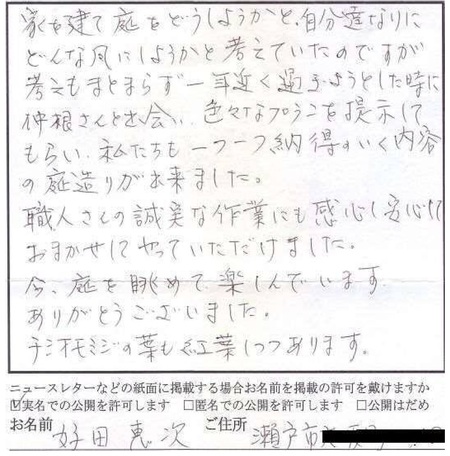 家を建て庭をどうしようかと、自分達なりに
どんな風にしようかと考えていたのですが
考えもまとまらず一年近く過ぎようとした時に
仲根さんと出会い、色々なプランを提示して
もらい、私たちも一つ一つ納得のいく内容
の庭造りが出来ました。
職人さんの誠実な作業にも感心し安心して
おまかせしてやっていただけました。
今、庭を眺めて楽しんでいます。
ありがとうございました。
チシオモミジの葉も紅葉しつつあります。
ニュースレターなどの紙面に掲載する場合お名前を掲載の許可を戴けますか
☑実名での公開を許可します □匿名での公開を許可します □公開はだめ
お名前 好田恵次 ご住所 瀬戸市